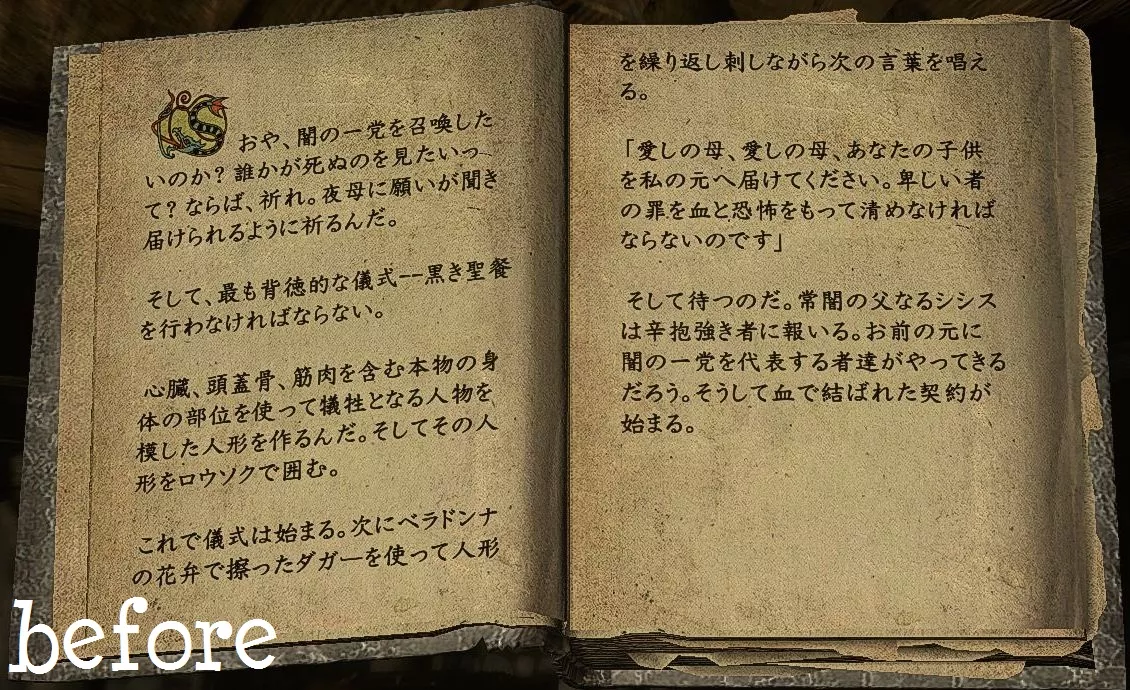 おや、闇の一党を召喚した
いのか? 誰かが死ぬのを見たいっ
て? ならば、祈れ。夜母に願いが聞き
届けられるように祈るんだ。
そして、最も背徳的な儀式--黒き聖餐
を行わなければならない。
心臓、頭蓋骨、筋肉を含む本物の身
体の部位を使って犠牲となる人物を
模した人形を作るんだ。そしてその人
形をロウソクで囲む。
これで儀式は始まる。次にベラドンナ
の花弁で擦ったダガーを使って人形
を繰り返し刺しながら次の言葉を唱え
る。
「愛しの母、愛しの母、あなたの子供
を私の元へ届けてください。卑しい者
の罪を血と恐怖をもって清めなければ
ならないのです」
そして待つのだ。常闇の父なるシシス
は辛抱強き者に報いる。お前の元に
闇の一党を代表する者達がやってきる
だろう。そうして血で結ばれた契約が
始まる。
before